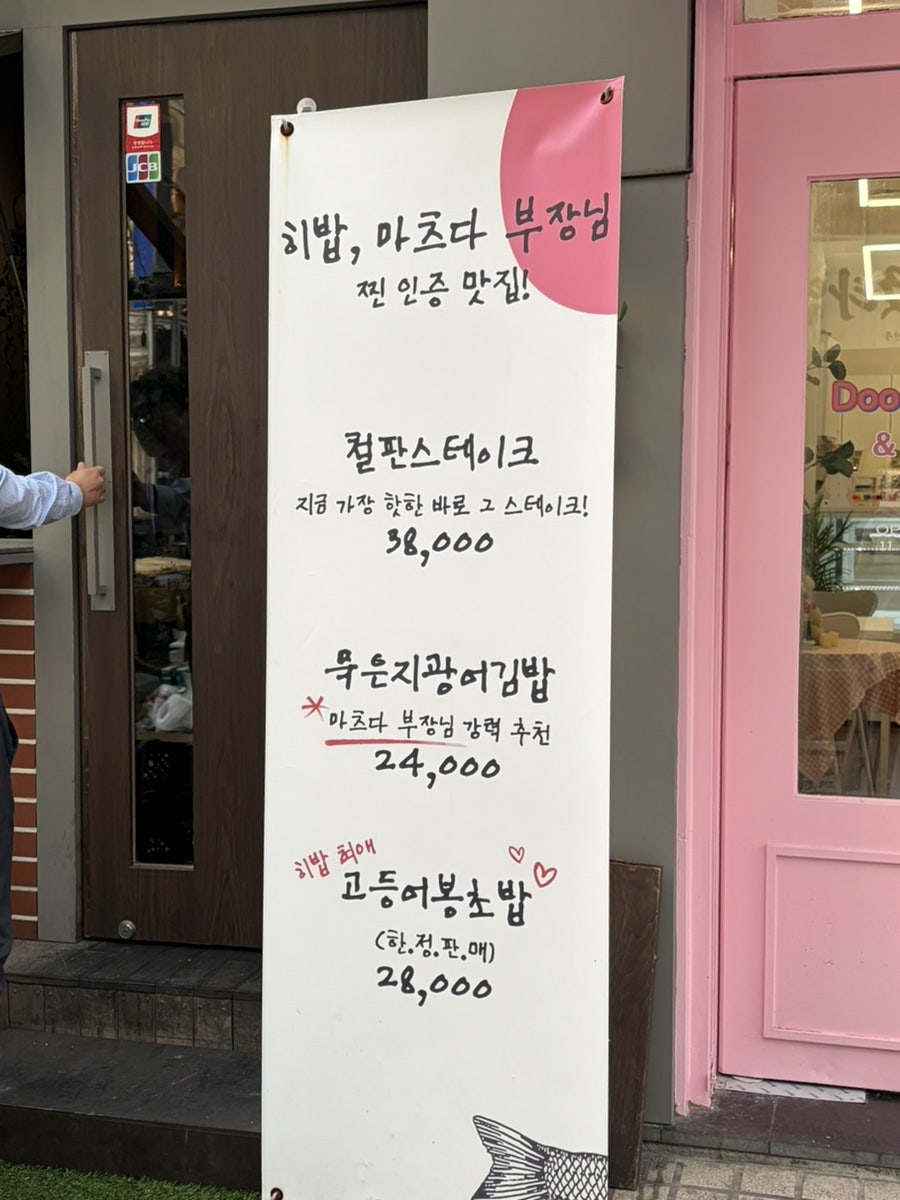 JCB
히밥, 마츠다 부장님
찐 인증 맛집!
철판스테이크
지금 가장 핫한 바로 그 스테이크!
38,000
묵은지광어김밥
*마츠다 부장님 강력 추천
24,000
히밥 최애
고등어봉초밥
(한.정.판.매)
28,000
Doo
&
11